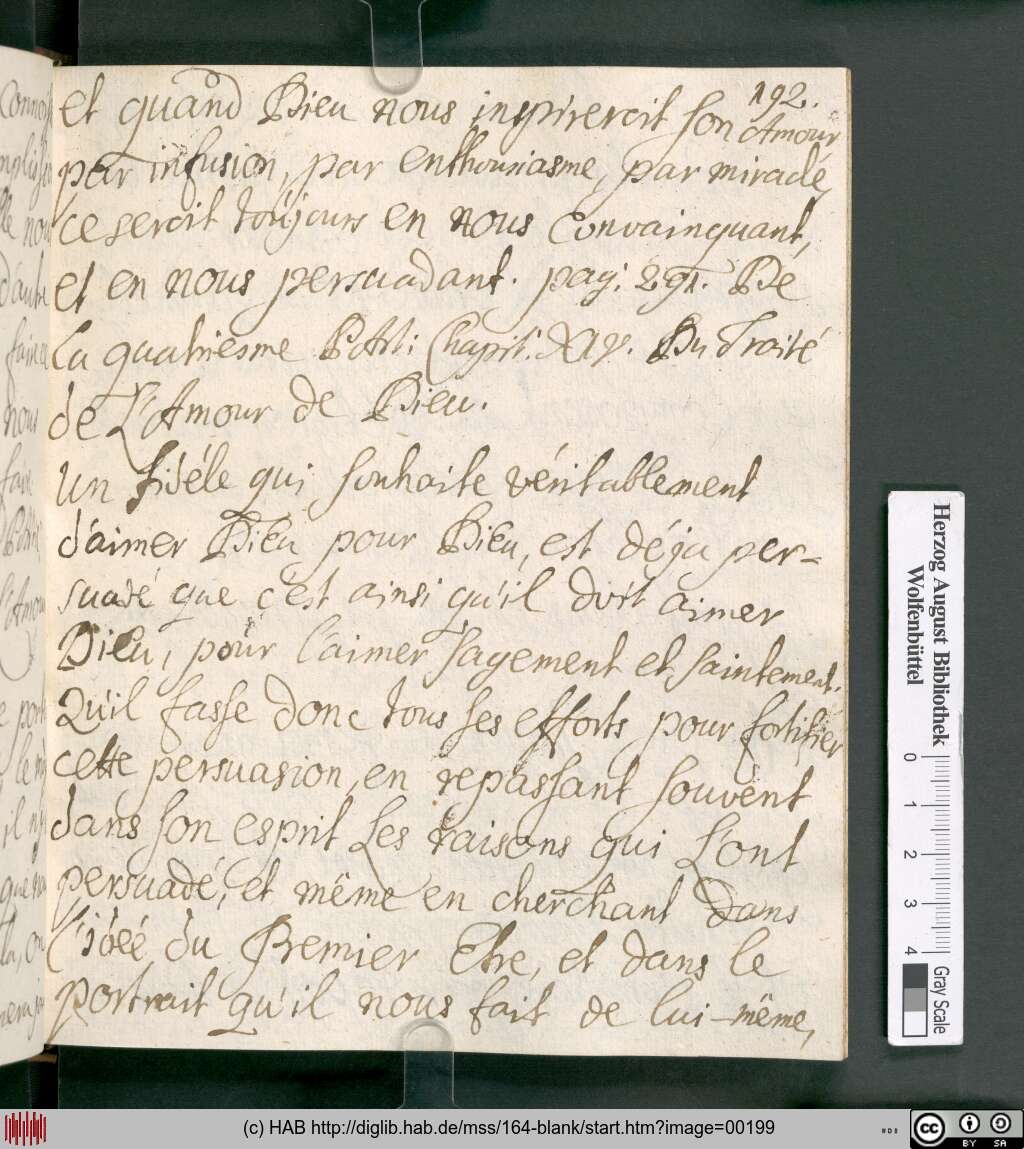 192.
et quand Dieu nous inspireroit son Amour
par infusion, par enthousiasme, par miracle,
ce seroit toûjours en nous convainquant,
et en nous persuadant. pag. 291. De
La quatriesme Part: Chapit. XIV. Du Traité
de L'Amour de Dieu.
Un fidéle qui souhaite véritablement
d'aimer Dieu pour Dieu, est déja per-
suadé que c'est ainsi qu'il doit aimer
Dieu, pour l'aimer sagement et saintement.
Qu'il fasse donc tous ses efforts pour fortifier
cette persuasion, en repassant souvent
dans son esprit Les raisons qui L'ont
persuadé, et même en cherchant dans
l'idée du Premier Etre, et dans le
portrait qu'il nous fait de lui-même,
Herzog August Bibliothek
Wolfenbüttel
0 1 2 3 4
Gray Scale
(c) HAB http://diglib.hab.de/mss/164-blank/start.htm?image=00199
cc BY SA